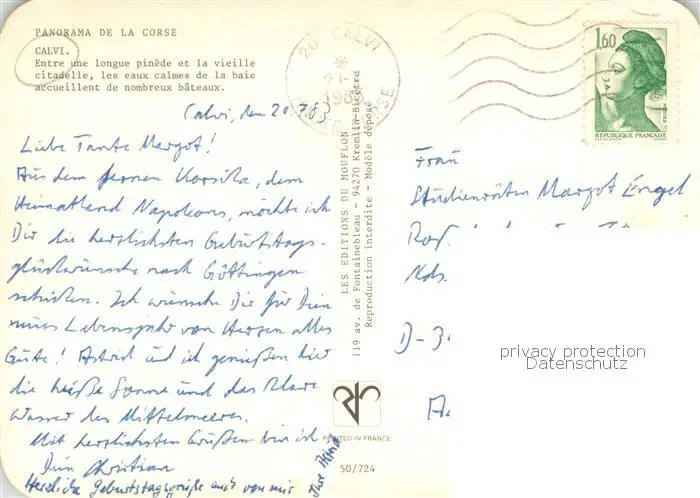 PANORAMA DE LA CORSE
CALVI.
Entre une longue pinède et la vieille
citadelle, les eaux calmes de la baie
accueillent de nombreux bâteaux.
Calvi, den 20.7.83
Liebe Tante Margot!
Aus dem fernen Korsika, dem
Heimatland Napoleons, möchte ich
Dir die herzlichsten Geburtstags-
glückwünsche nach Göttingen
schicken. Ich wünsche Dir für Dein
neues Lebensjahr von Herzen alles
Gute! Astrid und ich genießen hier
die heiße Sonne und das klare
Wasser des Mittelmeeres.
Mit herzlichsten Grüßen bin ich
Dein Christian
Herzliche Geburtstagsgrüße auch von mir
Ihre Astrid
LES EDITIONS DU MOUFLON
119 av. de Fontainebleau - 94270 Kremlin-Bicêtre
Reproduction interdite - Modèle déposé
PRINTED IN FRANCE
50/724
20 CALVI
21-
CORSE
1,60
REPUBLIQUE FRANÇAISE
Frau
Studienrätin Margot Engel
D-3
privacy protection
Datenschutz